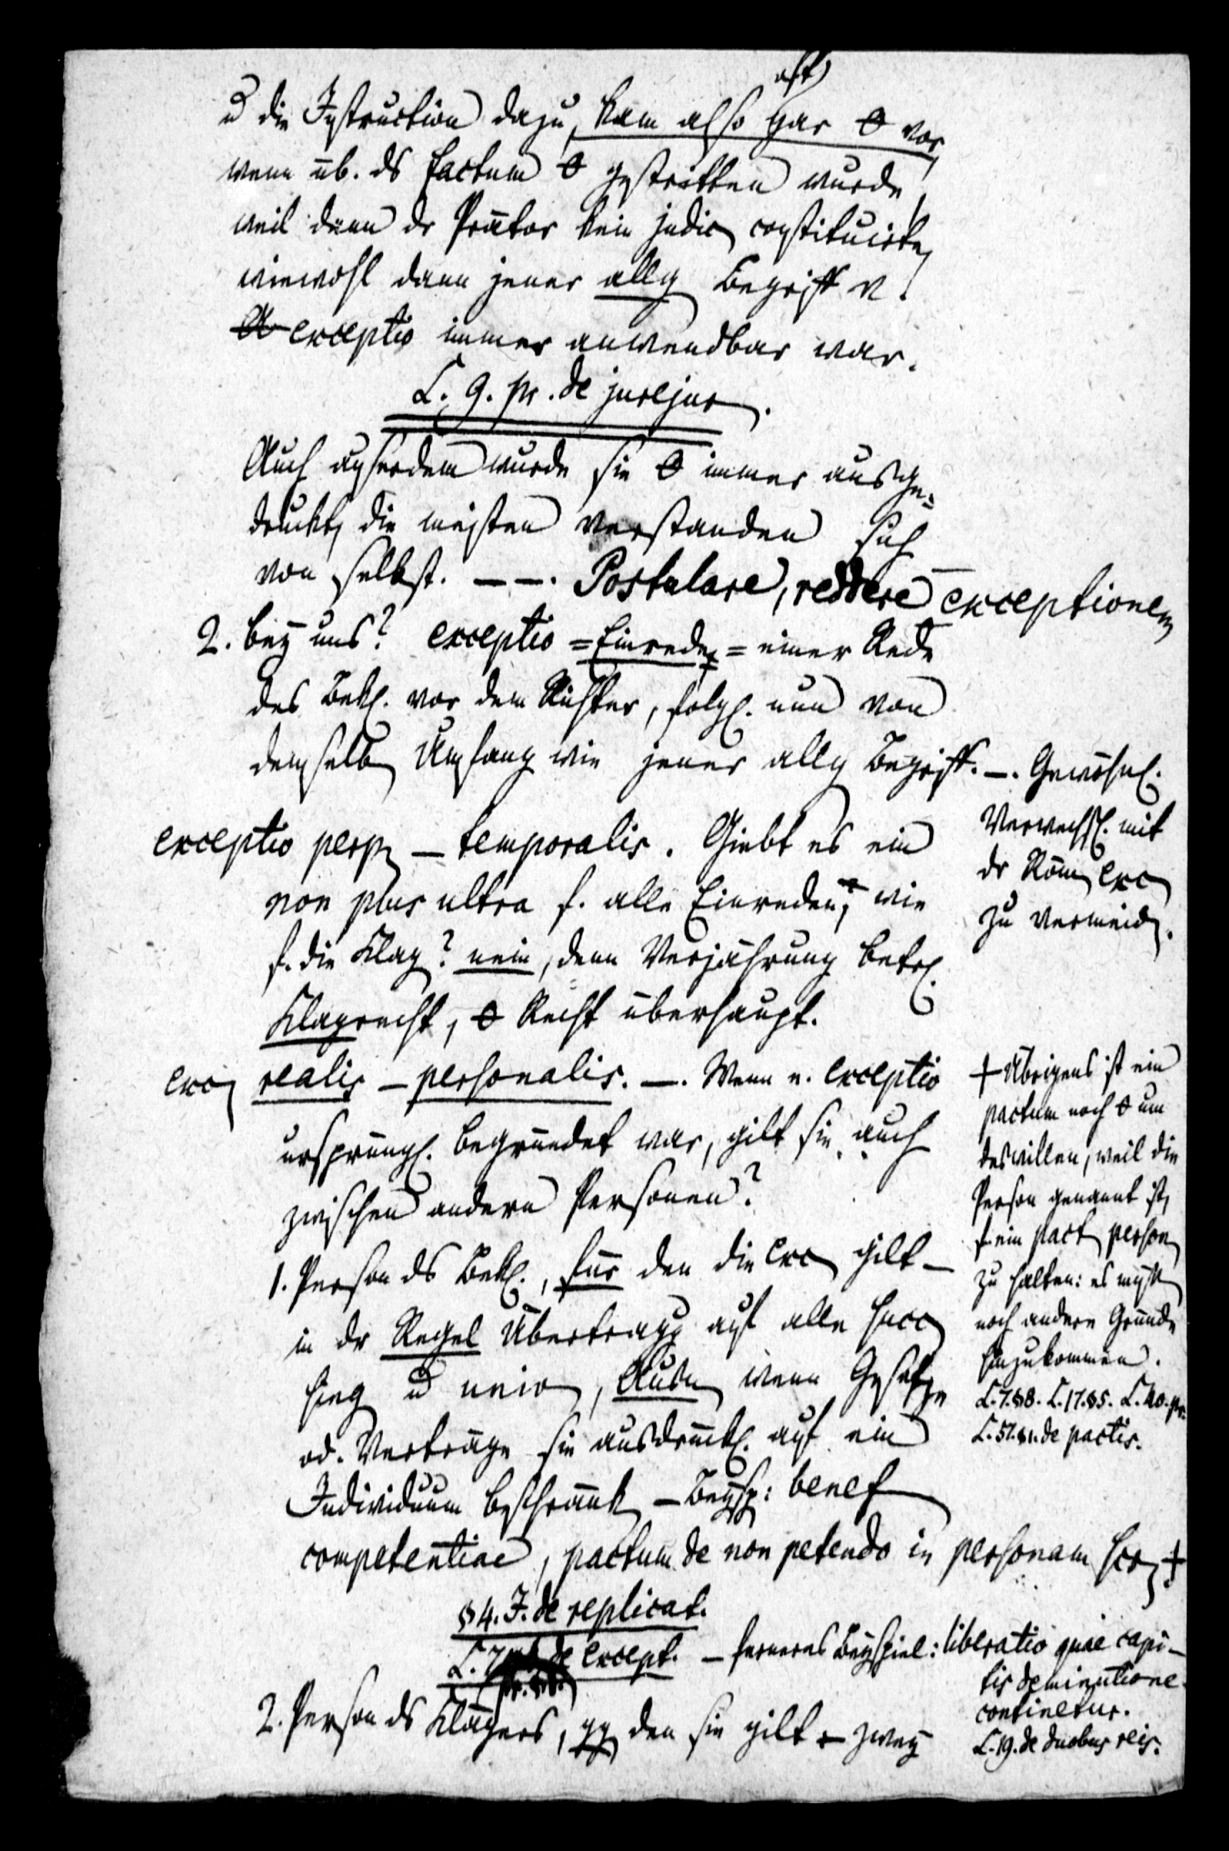 oft
u die Instruction dazu, kam also gar θ vor,
wenn üb. ds factum θ gestritten wurde,
weil dann dr Prätor kein judic constituirte,
wiewohl dann jener allg Begriff v.
exceptio immer anwendbar war.
L. 9. pr. de jurejur.
Auch außerdem wurde sie θ immer ausge=
druckt, die meisten verstanden sich
von selbst. — —. Postulare, reddere exceptionem
2. bey uns? exceptio = Einrede = einer Rede
des Bekl. vor dem Richter, folgl. nun von
demselb Umfang wie jener allg Begriff. —. Gewöhnl.
Verwechsl. mit
dr Röm exc
zu vermeid.
exceptio perp — temporalis. Giebt es ein
non plus ultra f. alle Einreden, wie
f. die Klag? nein, denn Verjährung betr.
Klagrecht, θ Recht überhaupt.
exc realis — personalis. —. Wenn e. exceptio
ursprüngl. begründet war, gilt sie auch
zwischen andern Personen?
1. Person ds Bekl., für den die exc gilt —
in dr Regel Übertragg auf alle succ
sing u univ, Ausn wenn Gesetze
od. Verträge sie ausdrückl. auf ein
Individuum beschränkt — Beysp: benef
competentiae, pactum de non petendo in personam scr +
+ Übrigens ist ein
pactum noch θ um
deswillen, weil die
Person genannt ist,
f. ein pact person
zu halten: es müßt
noch andere Gründe
hinzukommen.
L. 7. §8. L. 17. §5. L. 40. pr.
L. 57. §1. de pactis.
§ 4. I. de replicat.
L. 7 de except. — ferneres Beyspiel: liberatio quae capi-
tis deminutione
continetur.
L. 19. de duobus reis.
2. Person ds Klägers, gg den sie gilt — zwey